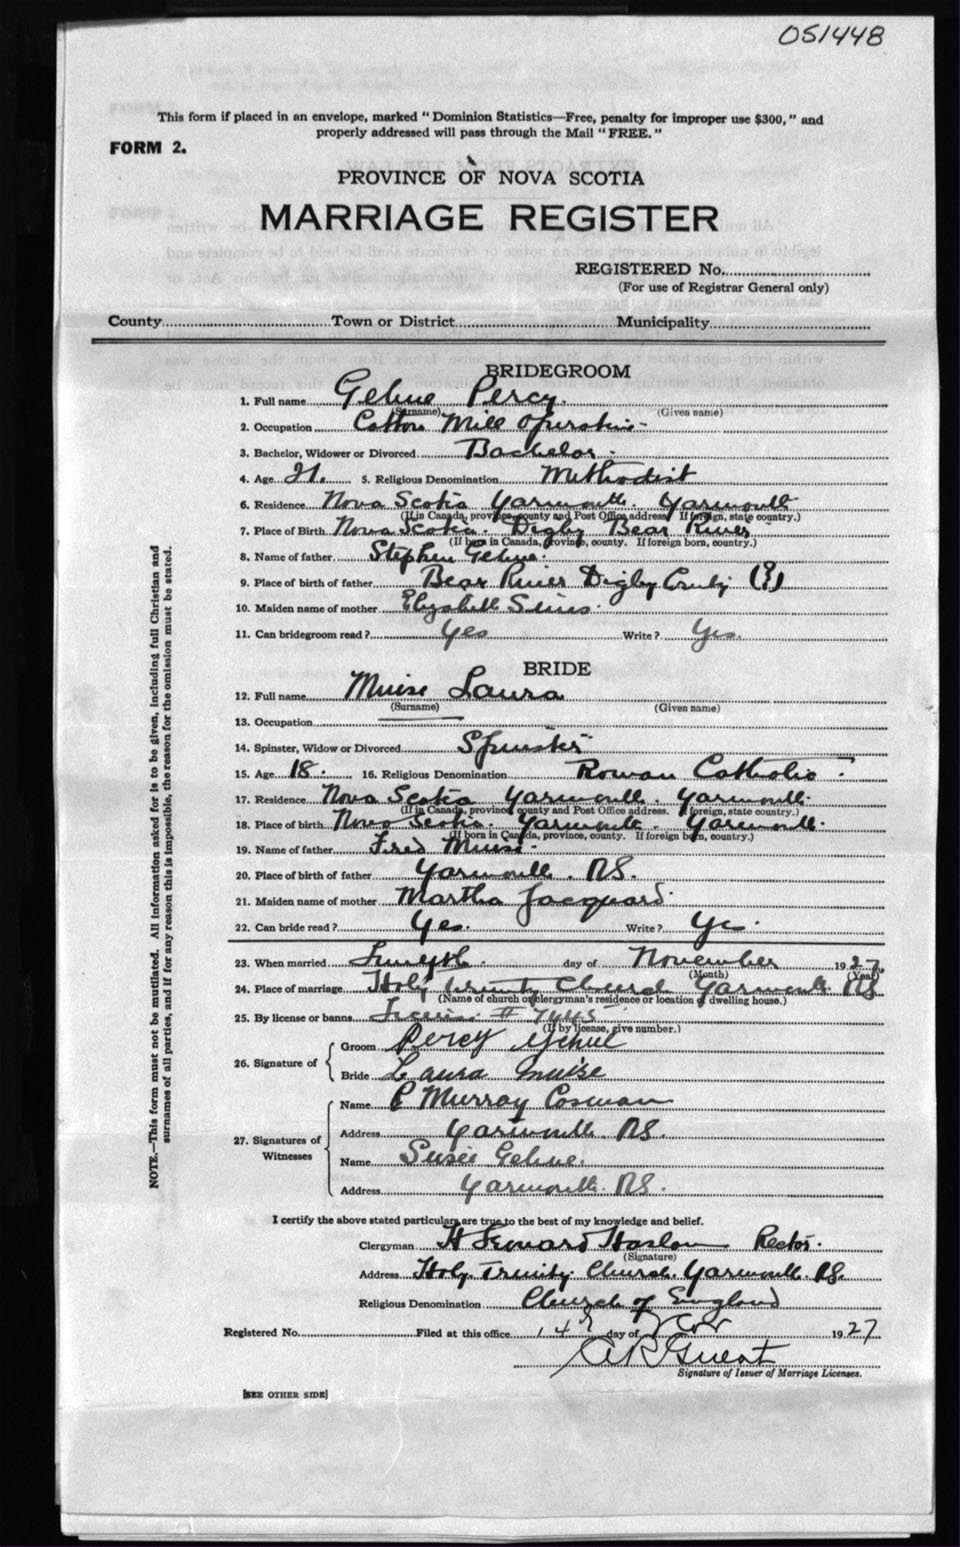 051448
This form if placed in an envelope, marked "Dominion Statistics—Free, penalty for improper use $300," and
properly addressed will pass through the Mail "FREE."
FORM 2.
PROVINCE OF NOVA SCOTIA
MARRIAGE REGISTER
REGISTERED No.
(For use of Registrar General only)
County Town or District Municipality
BRIDEGROOM
1. Full name Gehue Percy.
(Surname) (Given name)
2. Occupation Cotton Mill
3. Bachelor, Widower or Divorced Bachelor
4. Age 21. 5. Religious Denomination Methodist
6. Residence Nova Scotia Yarmouth. Yarmouth
(If in Canada, province, county and Post Office address. If foreign, state country.)
7. Place of Birth Nova Scotia. Digby Bear River
(If born in Canada, province, county. If foreign born, country.)
8. Name of father Stephen Gehue.
9. Place of birth of father Bear River Digby County (?)
10. Maiden name of mother Elizabeth
11. Can bridegroom read? Yes Write? Yes.
BRIDE
12. Full name Muise Laura
(Surname) (Given name)
13. Occupation
14. Spinster, Widow or Divorced Spinster
15. Age 18. 16. Religious Denomination Roman Catholic
17. Residence Nova Scotia Yarmouth. Yarmouth.
(If in Canada, province county and Post Office address. If foreign, state country.)
18. Place of birth Nova Scotia. Yarmouth. Yarmouth.
(If born in Canada, province, county. If foreign born, country.)
19. Name of father Fred Muise.
20. Place of birth of father Yarmouth. NS.
21. Maiden name of mother Martha Jacquard.
22. Can bride read? Yes. Write? Yes.
23. When married day of November 1927
(Month) (Year)
24. Place of marriage Holy Trinity Church Yarmouth NS
(Name of church or clergyman's residence or location of dwelling house.)
25. By license or banns License # 7445
(If by license, give number.)
26. Signature of
Groom Percy Gehue
Bride Laura Muise
27. Signatures of Witnesses
Name Murray Cosman
Address Yarmouth. NS.
Name Susie Gehue.
Address Yarmouth. NS.
I certify the above stated particulars are true to the best of my knowledge and belief.
Clergyman H Leonard Haslam Rector.
(Signature)
Address Holy Trinity Church. Yarmouth. NS.
Religious Denomination Church of England
Registered No. Filed at this office 14th day of Nov 1927
A R Guest
Signature of Issuer of Marriage Licenses.
[SEE OTHER SIDE]
NOTE.—This form must not be mutilated. All information asked for is to be given, including full Christian and
surnames of all parties, and if for any reason this is impossible, the reason for the omission must be stated.